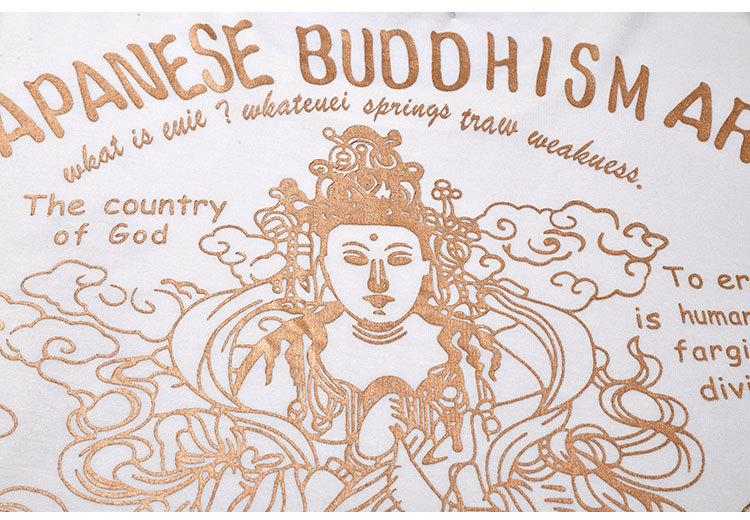 APANESE BUDDHISM AR
wkat is euie ? wkateuei springs traw weakuess.
The country
of God
To er
is human
fargi
divi